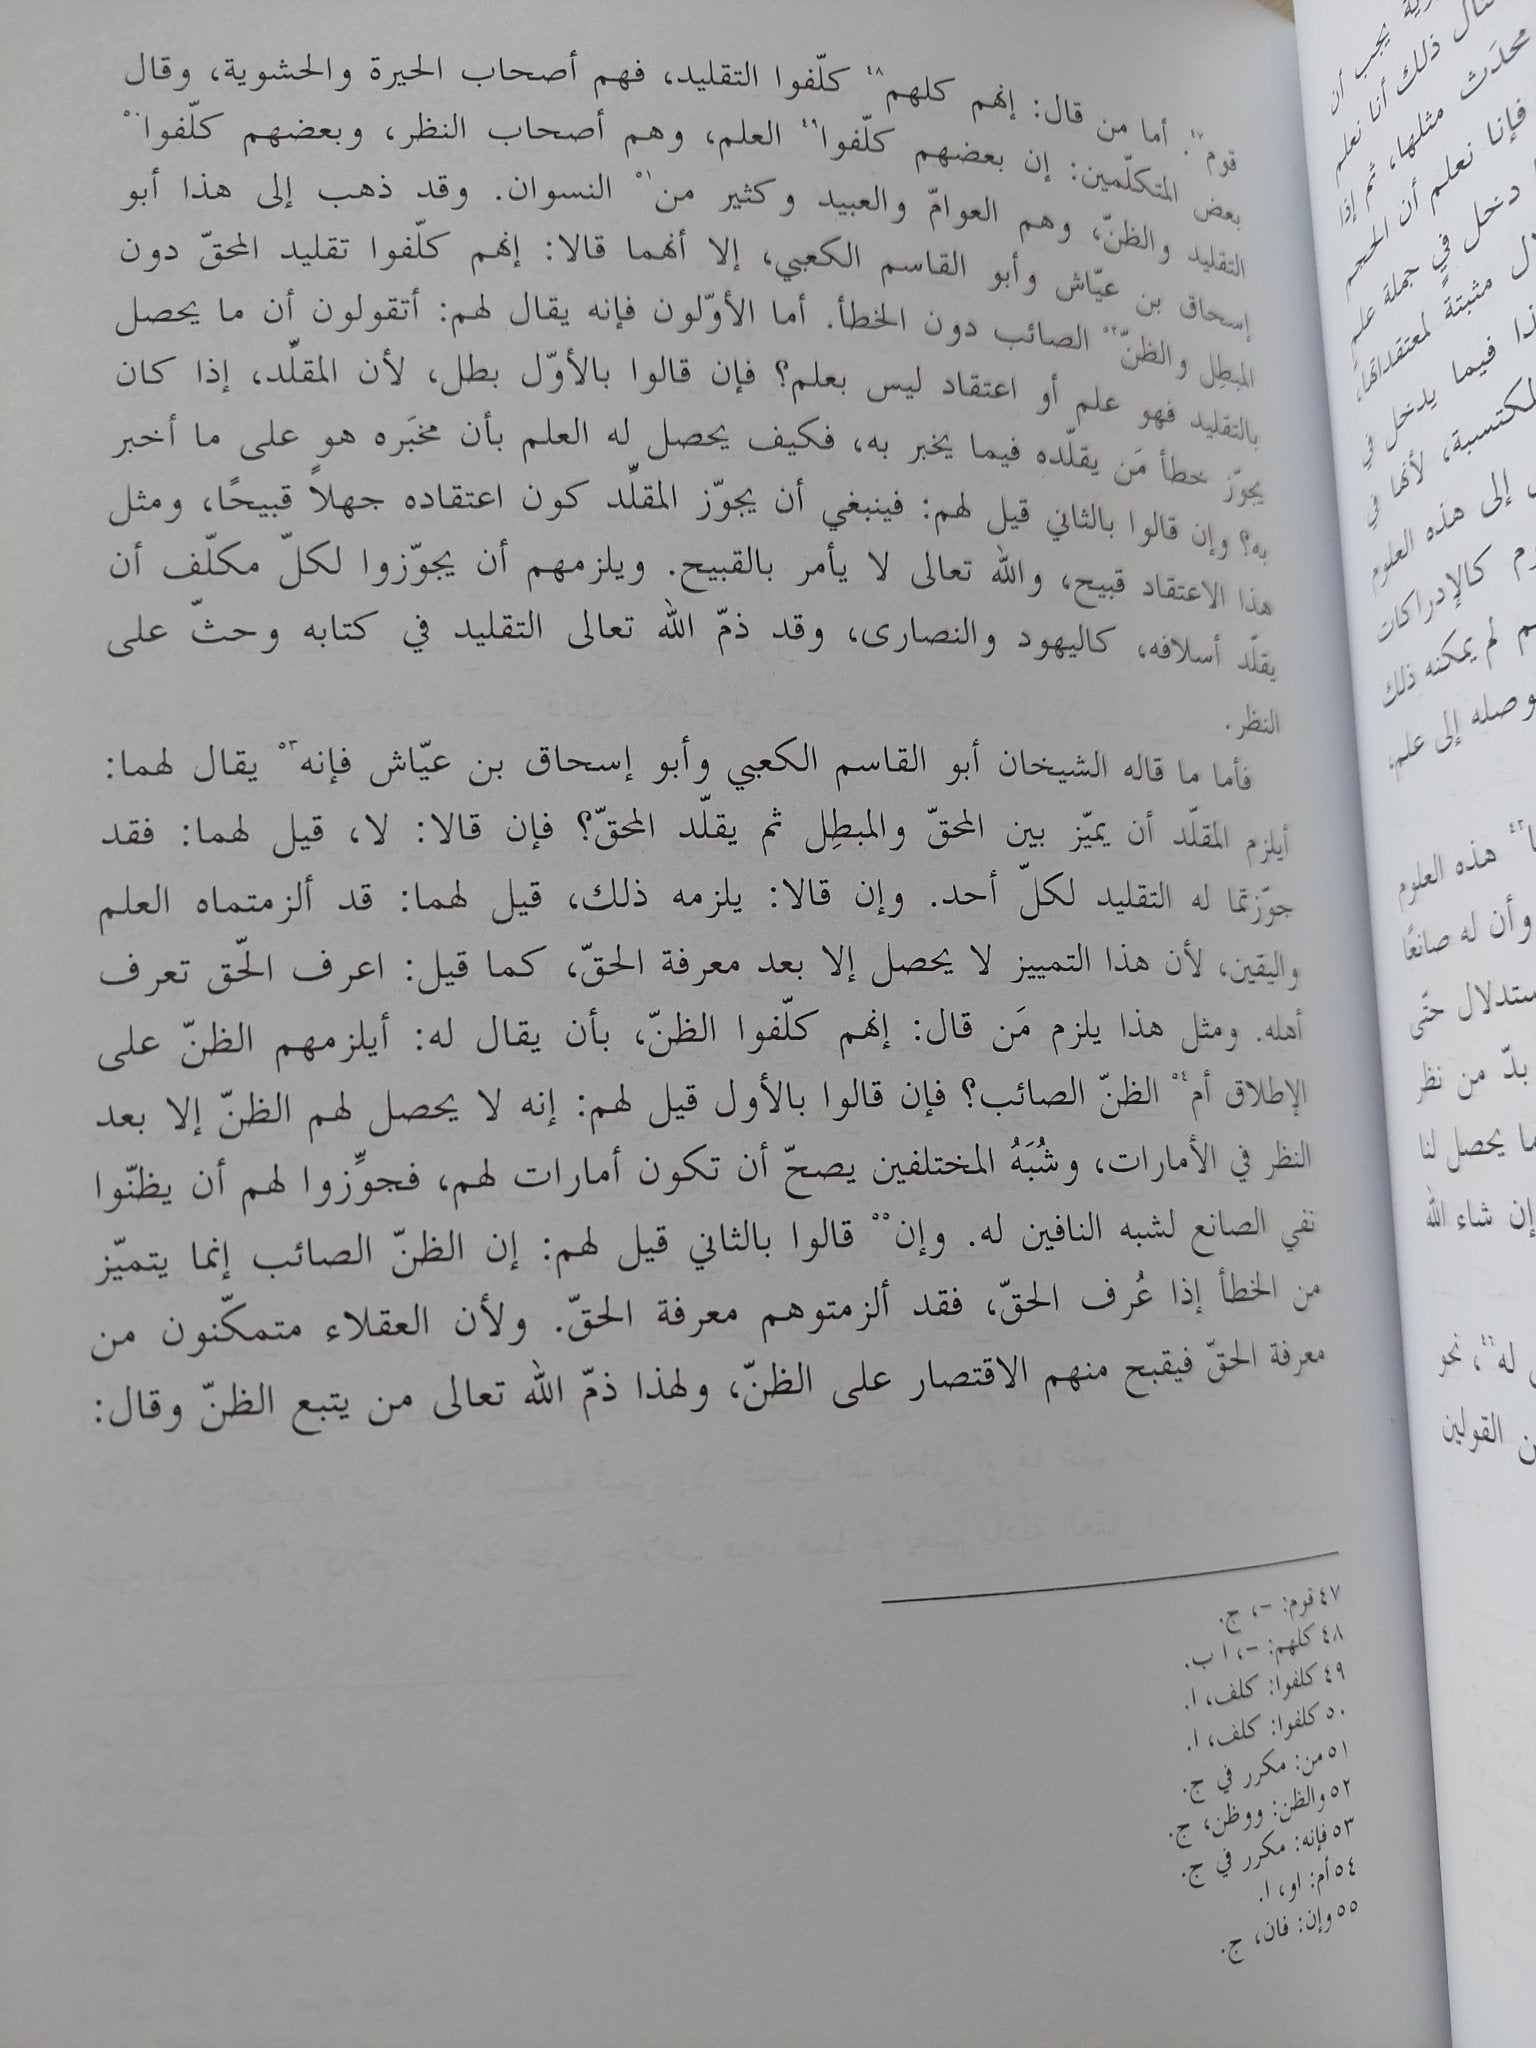 قوم٤٧. أما من قال: إنهم كلهم٤٨ كلّفوا التقليد، فهم أصحاب الحيرة والحشوية، وقال
بعض المتكلّمين: إن بعضهم كلّفوا٤٩ العلم، وهم أصحاب النظر، وبعضهم كلّفوا٥٠
التقليد والظنّ، وهم العوامّ والعبيد وكثير من٥١ النسوان. وقد ذهب إلى هذا أبو
إسحاق بن عيّاش وأبو القاسم الكعبي، إلا أنهما قالا: إنهم كلّفوا تقليد المحقّ دون
المبطِل والظنّ٥٢ الصائب دون الخطأ. أما الأوّلون فإنه يقال لهم: أتقولون أن ما يحصل
بالتقليد فهو علم أو اعتقاد ليس بعلم؟ فإن قالوا بالأوّل بطل، لأن المقلِّد، إذا كان
يجوّز خطأ مَن يقلّده فيما يخبر به، فكيف يحصل له العلم بأن مخبَره هو على ما أخبر
به؟ وإن قالوا بالثاني قيل لهم: فينبغي أن يجوّز المقلِّد كون اعتقاده جهلاً قبيحًا، ومثل
هذا الاعتقاد قبيح، والله تعالى لا يأمر بالقبيح. ويلزمهم أن يجوّزوا لكلّ مكلّف أن
يقلّد أسلافه، كاليهود والنصارى، وقد ذمّ الله تعالى التقليد في كتابه وحثّ على
النظر.
فأما ما قاله الشيخان أبو القاسم الكعبي وأبو إسحاق بن عيّاش فإنه٥٣ يقال لهما:
أيلزم المقلّد أن يميّز بين المحقّ والمبطِل ثم يقلّد المحقّ؟ فإن قالا: لا، قيل لهما: فقد
جوّزتما له التقليد لكلّ أحد. وإن قالا: يلزمه ذلك، قيل لهما: قد ألزمتماه العلم
واليقين، لأن هذا التمييز لا يحصل إلا بعد معرفة الحقّ، كما قيل: اعرف الحّق تعرف
أهله. ومثل هذا يلزم مَن قال: إنهم كلّفوا الظنّ، بأن يقال له: أيلزمهم الظنّ على
الإطلاق أم٥٤ الظنّ الصائب؟ فإن قالوا بالأول قيل لهم: إنه لا يحصل لهم الظنّ إلا بعد
النظر في الأمارات، وشُبَهُ المختلفين يصحّ أن تكون أمارات لهم، فجوِّزوا لهم أن يظنّوا
نفي الصانع لشبه النافين له. وإن٥٥ قالوا بالثاني قيل لهم: إن الظنّ الصائب إنما يتميّز
من الخطأ إذا عُرف الحقّ، فقد ألزمتوهم معرفة الحقّ. ولأن العقلاء متمكّنون من
معرفة الحقّ فيقبح منهم الاقتصار على الظنّ، ولهذا ذمّ الله تعالى من يتبع الظنّ وقال:
٤٧ قوم: -، ج.
٤٨ كلهم: -، ا ب.
٤٩ كلفوا: كلف، ا.
٥٠ كلفوا: كلف، ا.
٥١ من: مكرر في ج.
٥٢ والظن: ووظن، ج.
٥٣ فإنه: مكرر في ج.
٥٤ أم: او، ا.
٥٥ وإن: فان، ج.
يجب أن
ذلك أنا نعلم
محدَث مثلها، ثم إذا
فإنا نعلم أن الحجم
دخل في جملة علم
مثبتة لمعتقداتها،
فيما يدخل في
المكتسبة، لأنها في
إلى هذه العلوم
كالإدراكات
لم يمكنه ذلك
إلى علم،
هذه العلوم
وأن له صانعًا
حتّى
بدّ من نظر
ما يحصل لنا
إن شاء الله
له٤٦، نحو
القولين